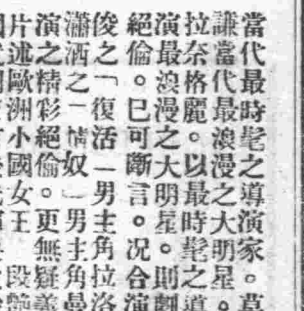 當代最時髦之導演家。
謙當代最浪漫之大明星。
拉奈格麗。以最時髦之導
演最浪漫之大明星。則
絕倫。巳可斷言。况合演
俊之「復活」男主角拉洛
瀟洒之「情奴」男主角曼
演之精彩絕倫。更無疑義
片述歐洲小國女王 段